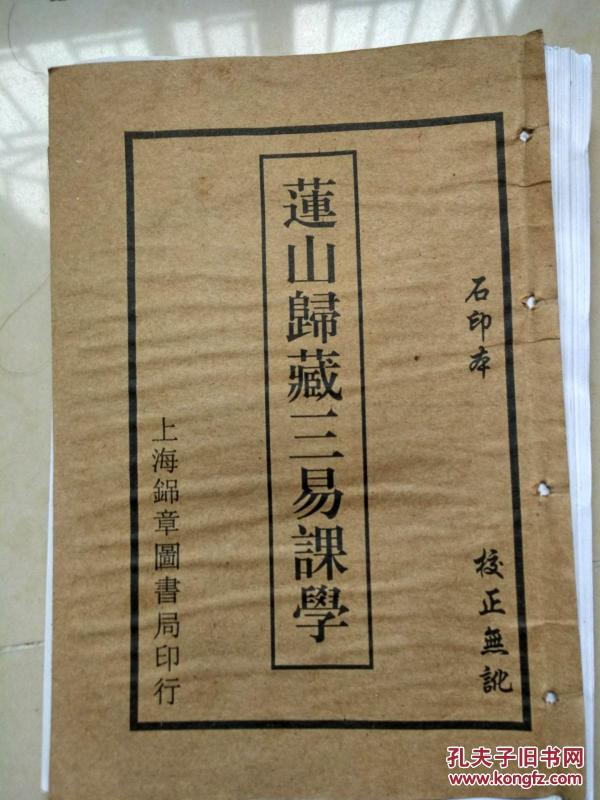 石印本
校正無訛
蓮山歸藏三易課學
上海錦章圖書局印行
孔夫子旧书网
www.kongfz.com